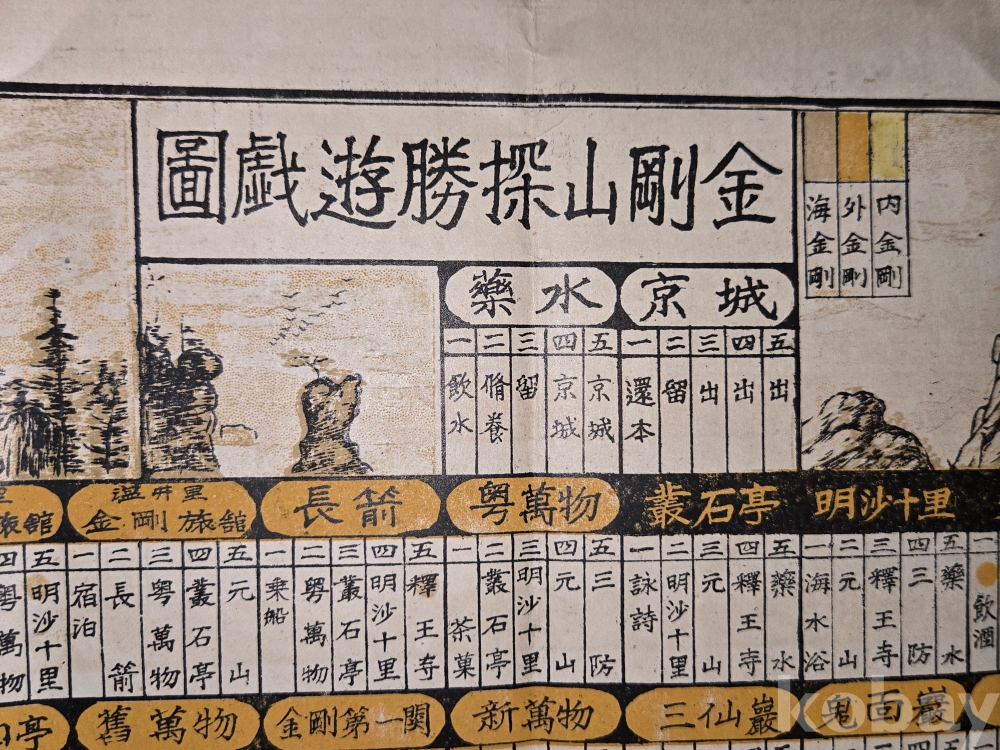 金剛山探勝遊戱圖
內金剛
外金剛
海金剛
藥水
一 飲水
二 脩養
三 留
四 京城
五 京城
京城
一 還本
二 留
三 出
四 出
五 出
旅舘
四 粤萬物
五 明沙十里
溫井里
金剛旅舘
一 宿泊
二 長箭
三 粤萬物
四 叢石亭
五 元山
長箭
一 乗船
二 粤萬物
三 叢石亭
四 明沙十里
五 釋王寺
粤萬物
一 茶菓
二 叢石亭
三 明沙十里
四 元山
五 三防
叢石亭
一 詠詩
二 明沙十里
三 元山
四 釋王寺
五 藥水
明沙十里
一 海水浴
二 元山
三 釋王寺
四 三防
五 藥水
一 飲酒
亭
舊萬物
金剛第一関
新萬物
三仙巖
鬼面巖
kobay